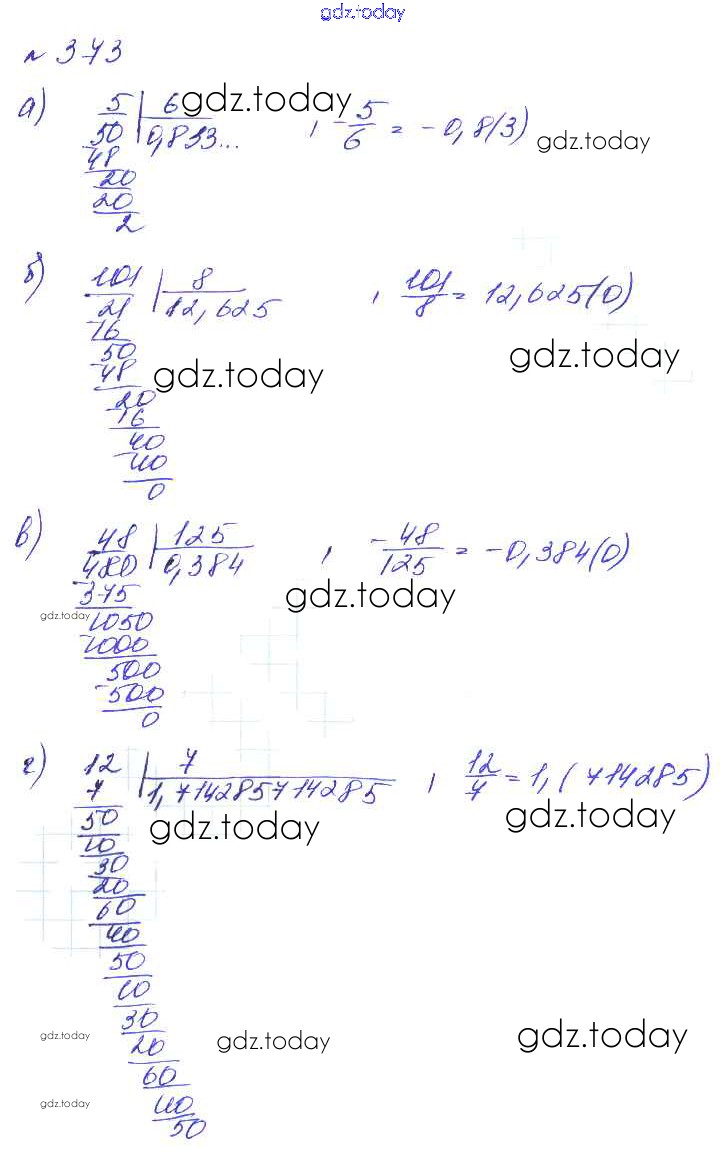 gdz.today
№ 373
а) 5 | 6 gdz.today
50 0,833... , -5/6 = -0,8(3) gdz.today
48
20
20
2
б) 101 | 8 , 101/8 = 12,625(0)
21 12,625
16
50 gdz.today
48 gdz.today
20
16
40
40
0
в) 48 | 125 , -48/125 = -0,384(0)
480 0,384
375 gdz.today
gdz.today 1050
1000
500
500
0
г) 12 | 7 , 12/7 = 1,(714285)
7 1,714285714285
50 gdz.today gdz.today
10
30
20
60
40
50
10
30
gdz.today 20 gdz.today gdz.today
60
gdz.today 40
50